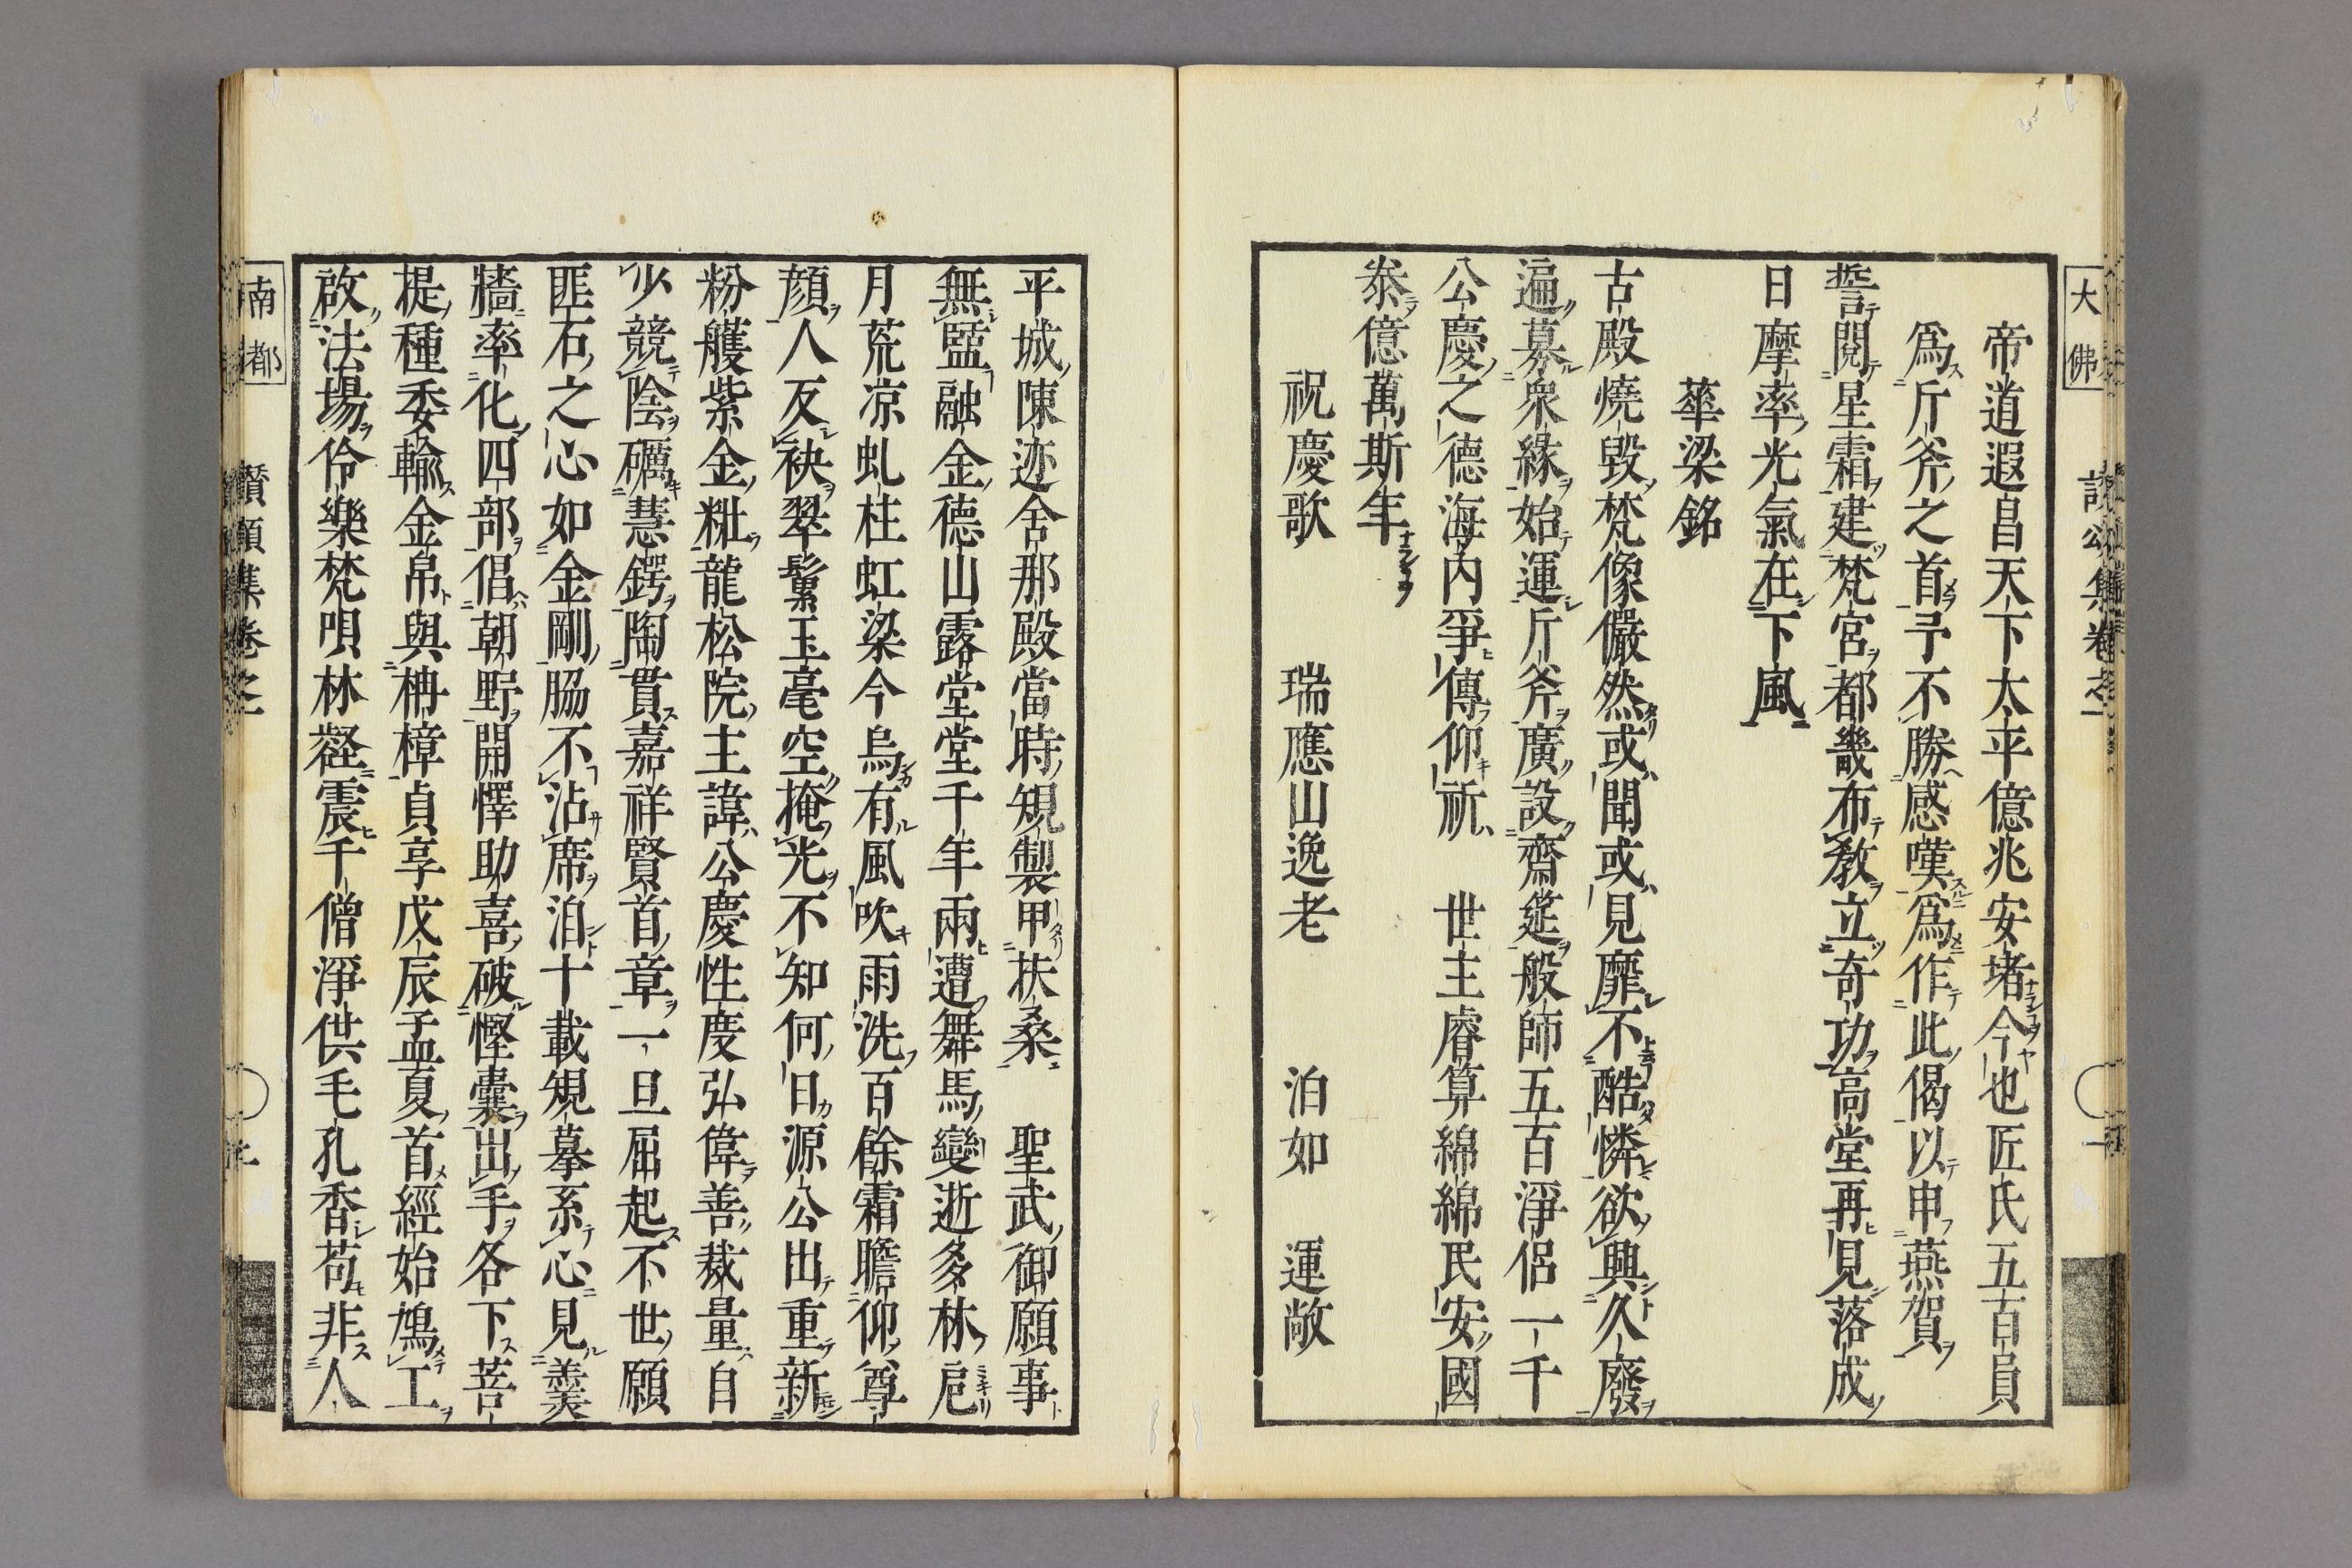 大佛
讃公集卷之一
帝道遐昌天下太平億兆安堵今也匠氏五百員
爲斤斧之首予不勝感嘆爲作此偈以申燕賀
誓閲星霜建梵宮都畿布教立奇功高堂再見落成
日摩率光氣在下風
華梁銘
古殿燒毀梵像儼然或聞或見靡不酷憐欲興久廢
遍募衆緣始運斤斧廣設齋筵般師五百淨侶一千
公慶之德海内爭傳仰祈 世主睿算綿綿民安國
泰億萬斯年
祝慶歌 瑞應山逸老 泊如 運敞
平城陳迹舍那殿當時規製甲扶桑 聖武御願事
無盬融金德山露堂堂千年兩遭舞馬變逝多林戺
月荒凉虬柱虹梁今烏有風吹雨洗百餘霜瞻仰尊
顏人反袂翠鬘玉毫空掩光不知何日源公出重新
粉艧紫金粃龍松院主諱公慶性度弘偉善裁量自
少競陰礪慧鍔陶貫嘉祥賢首章一旦屈起不世願
匪石之心如金剛脇不沾席洎十載規摹系心見羹
牆率化四部倡朝野開懌助喜破慳囊出手各下菩
提種委輸金帛與枏樟貞享戊辰孟夏首經始鳩工
啟法場伶樂梵唄林壑震千僧淨供毛孔香苟非人
南都
讃頌集卷之一